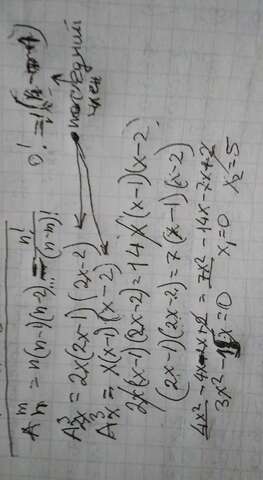 A_n^m = n(n-1)(n-2)... = n!/(n-m)!
0! = 1
последний член
A_{2x}^3 = 2x(2x-1)(2x-2)
A_x^3 = x(x-1)(x-2)
2x(2x-1)(2x-2) = 14x(x-1)(x-2)
(2x-1)(2x-2) = 7(x-1)(x-2)
4x² - 4x - 2x + 2 = 7x² - 14x - 7x +
3x² - 15x = 0 x₁ = 0 x₂ = 5